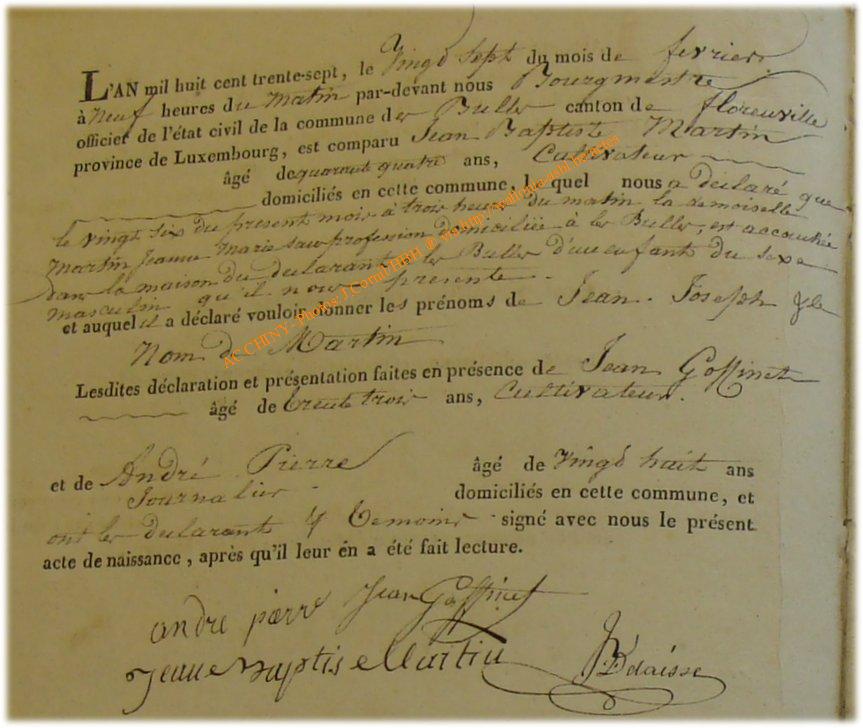 L'AN mil huit cent trente-sept, le Vingd sept du mois de fevrier
à Neuf heures du Matin par-devant nous Bourgmestre
officier de l'état civil de la commune de les Bulles canton de florenville
province de Luxembourg, est comparu Jean Baptiste Martin
âgé de quarante quatre ans, Cultivateur
domiciliés en cette commune, lequel nous a déclaré que
le vingt six du present mois à trois heures du matin la demoiselle
Martin Jeanne Marie sans profession domiciliée à les Bulles, est accouchée
dans la maison du declarant à les Bulles d'un enfant du sexe
masculin qu'il nous presente.
et auquel il a déclaré vouloir donner les prénoms de Jean Joseph & le
Nom de Martin
Lesdites déclaration et présentation faites en présence de Jean Goffinet
âgé de trente trois ans, Cultivateur.
et de André Pierre âgé de Vingd huit ans
Journalier domiciliés en cette commune, et
ont les declarant & temoins signé avec nous le présent
acte de naissance, après qu'il leur en a été fait lecture.
andre pierre Jean Goffinet
Jeane Baptise Martin
AC CHINY - photos J. Cornil/JHBH @